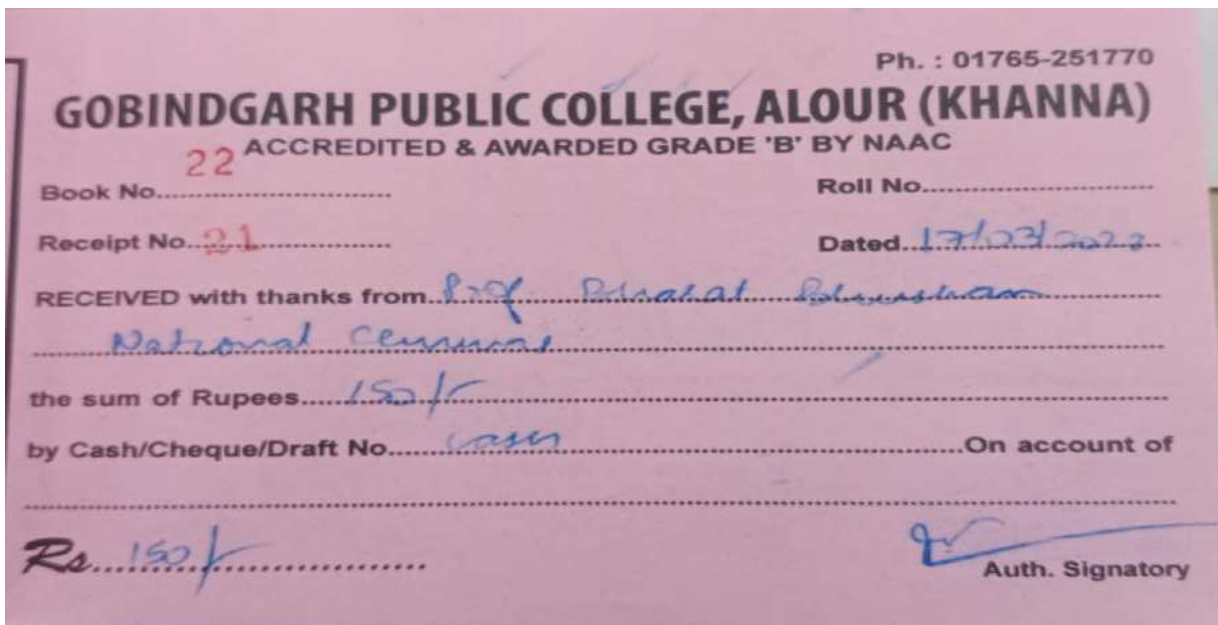 Ph. : 01765-251770
GOBINDGARH PUBLIC COLLEGE, ALOUR (KHANNA)
ACCREDITED & AWARDED GRADE 'B' BY NAAC
Book No. 22 Roll No.
Receipt No. 21 Dated. 17/03/2022
RECEIVED with thanks from Prof Bharat Bhushan
National
the sum of Rupees 150/-
by Cash/Cheque/Draft No. Cash On account of
Rs. 150/-
Auth. Signatory